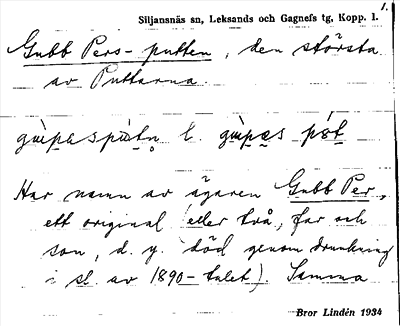 1.
Siljansnäs sn, Leksands och Gagnefs tg, Kopp. l.
Gubb Pers-putten, den största
av Puttarna.
l.
Har namn av ägaren Gubb Per,
ett original (eller två, far och
son, d. y. död genom drunkning
i sl. av 1890-talet). Samma
Bror Lindén 1934